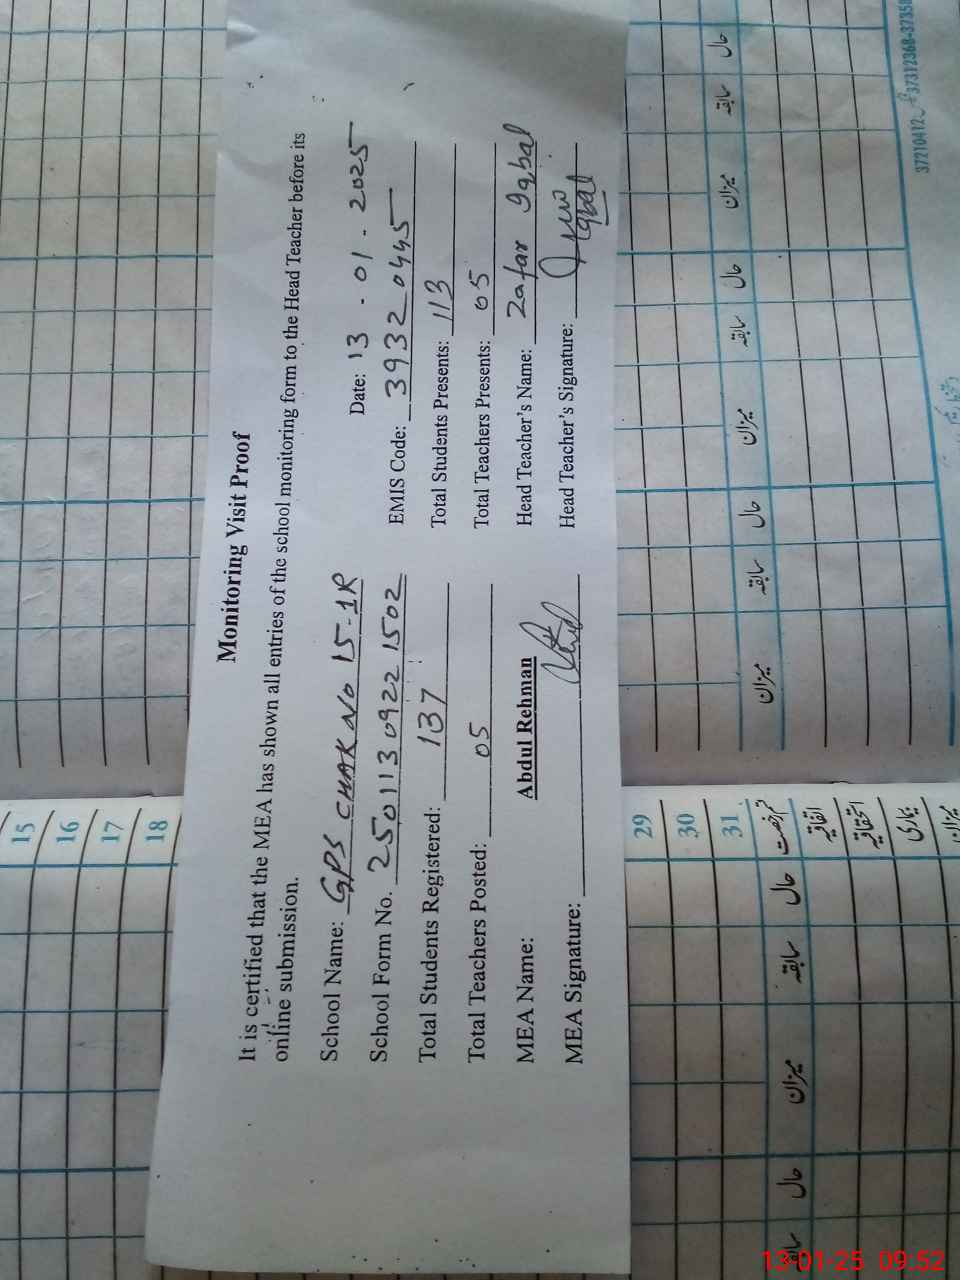 Monitoring Visit Proof
It is certified that the MEA has shown all entries of the school monitoring form to the Head Teacher before its
online submission.
Date: 13 - 01 - 2025
School Name: GPS CHAK NO 15-1R
EMIS Code: 39320445
School Form No. 25011309221502
Total Students Presents: 113
Total Students Registered: 137
Total Teachers Presents: 05
Total Teachers Posted: 05
Head Teacher's Name: Zafar Iqbal
MEA Name: Abdul Rehman
Head Teacher's Signature: Iqbal
MEA Signature:
15
16
17
18
29
30
31
میزان سابقہ حال میزان سابقہ حال میزان سابقہ حال
سابقہ حال میزان سابقہ حال
قسم رخصت
اتفاقیہ
استحقاقیہ
بیماری
میزان
37210412
37312368-3735
13-01-25 09:52